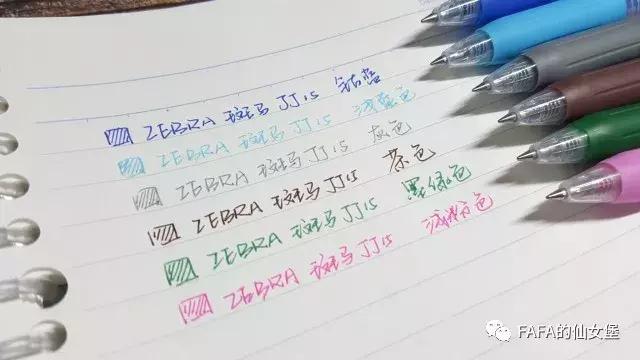 ZEBRA 斑马 JJ15 钴蓝
ZEBRA 斑马 JJ15 浅蓝色
ZEBRA 斑马 JJ15 灰色
ZEBRA 斑马 JJ15 茶色
ZEBRA 斑马 JJ15 墨绿色
ZEBRA 斑马 JJ15 浅粉色
FAFA的仙女堡